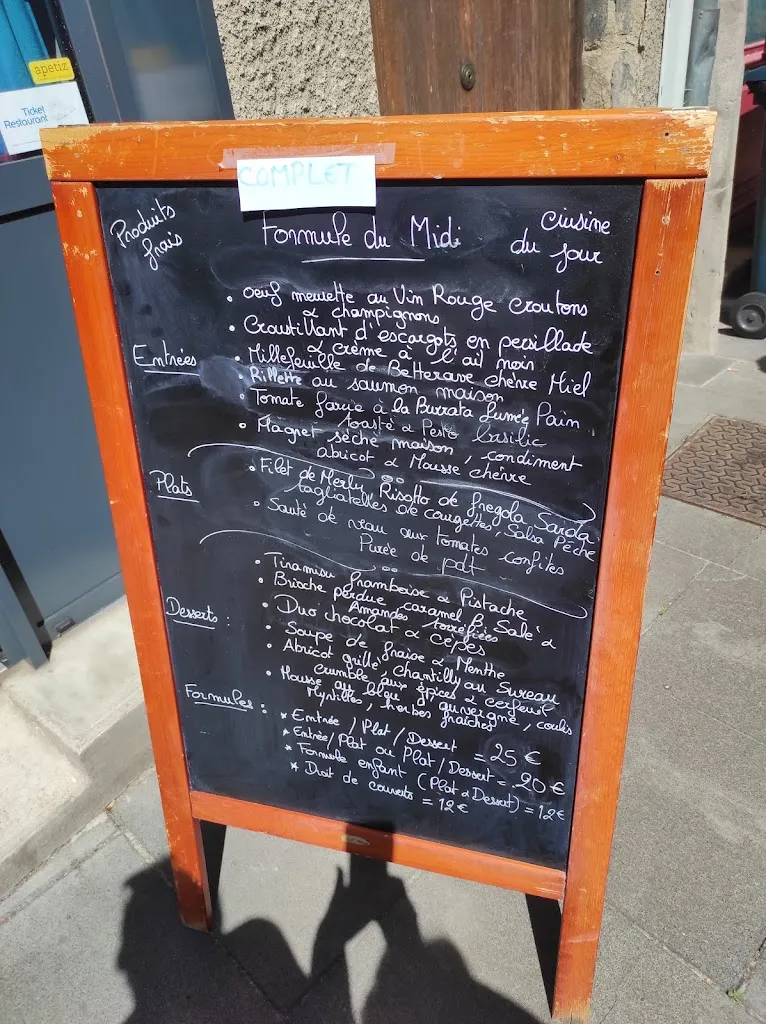 apetiz
Ticket
Restaurant
COMPLET
Produits
frais
Formule du Midi
Cuisine
du jour
Entrées
• Oeuf meurette au Vin Rouge croutons
& champignons
• Croustillant d'escargots en persillade
& crème à l'ail noir
• Millefeuille de Betterave chèvre Miel
• Rillette au saumon maison
• Tomate farcie à la Burrata fumée Pain
toasté & Pesto basilic
• Magret séché maison, condiment
abricot & Mousse chèvre
Plats
• Filet de Merlu, Risotto de fregola Sarda
tagliatelles de courgettes, Salsa Pêche
• Sauté de veau aux tomates confites
Purée de pdt
Desserts :
• Tiramisu framboise & Pistache
• Brioche perdue caramel B. Salé &
Amandes torréfiées
• Duo chocolat & cèpes
• Soupe de fraise & Menthe
• Abricot grillé, chantilly au Sureau
crumble aux épices & cerfeuil
• Mousse au bleu d'auvergne, coulis
Myrtilles, herbes fraîches
Formules :
* Entrée / Plat / Dessert = 25 €
* Entrée/Plat ou Plat/Dessert = 20 €
* Formule enfant (Plat & Dessert) = 12€
* Droit de couverts = 12 €